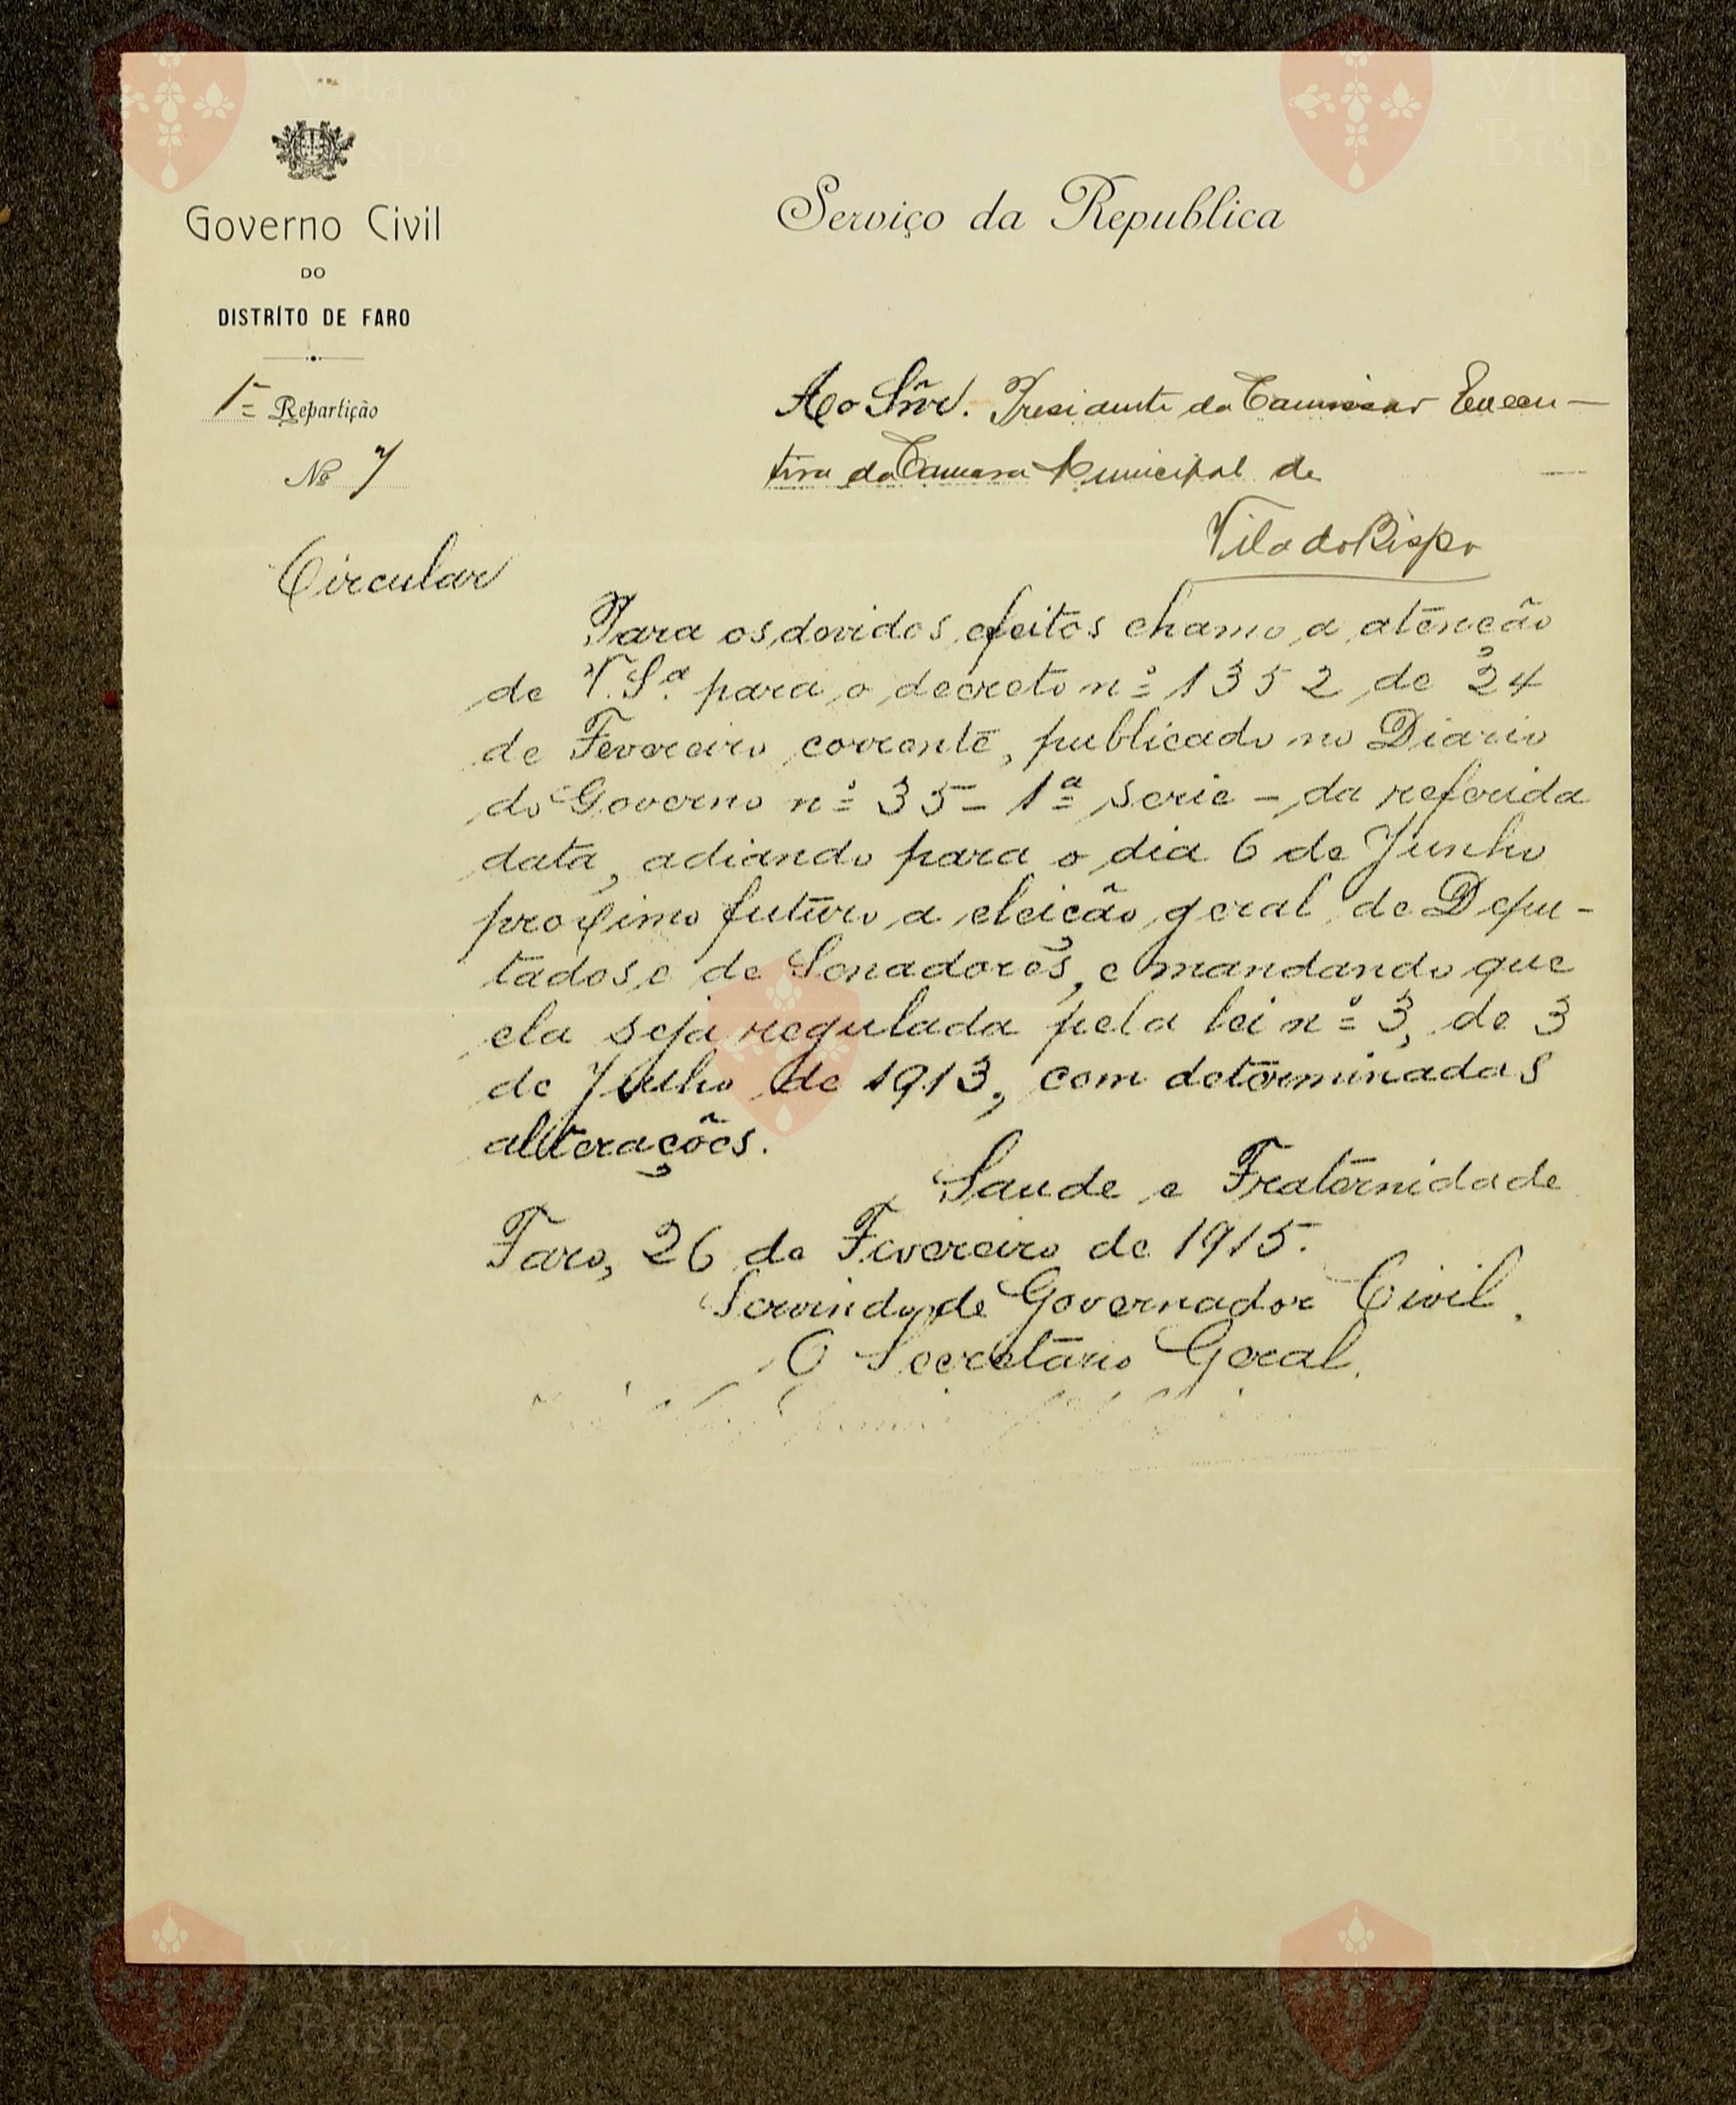 Governo Civil
DO
DISTRÍTO DE FARO
1ª Repartição
Nº 7
Circular
Serviço da Republica
Ao Snr. Presidente da Comissão Execu-
tiva da Camara Municipal de
Vila do Bispo
Para os devidos efeitos chamo a atenção
de V. Sª. para o decreto nº 1352 de 24
de Fevereiro corrente, publicado no Diario
do Governo nº 35 - 1ª serie - da referida
data, adiando para o dia 6 de Junho
proximo futuro a eleicão geral de Depu-
tados e de Senadores, e mandando que
ela seja regulada pela lei nº 3, de 3
de Julho de 1913, com determinadas
alterações.
Saude e Fraternidade
Faro, 26 de Fevereiro de 1915.
Servindo de Governador Civil,
O Secretario Geral,
Vila do
Bispo
Vila
Bispo
Vila do
Bispo
Vila do
Bispo